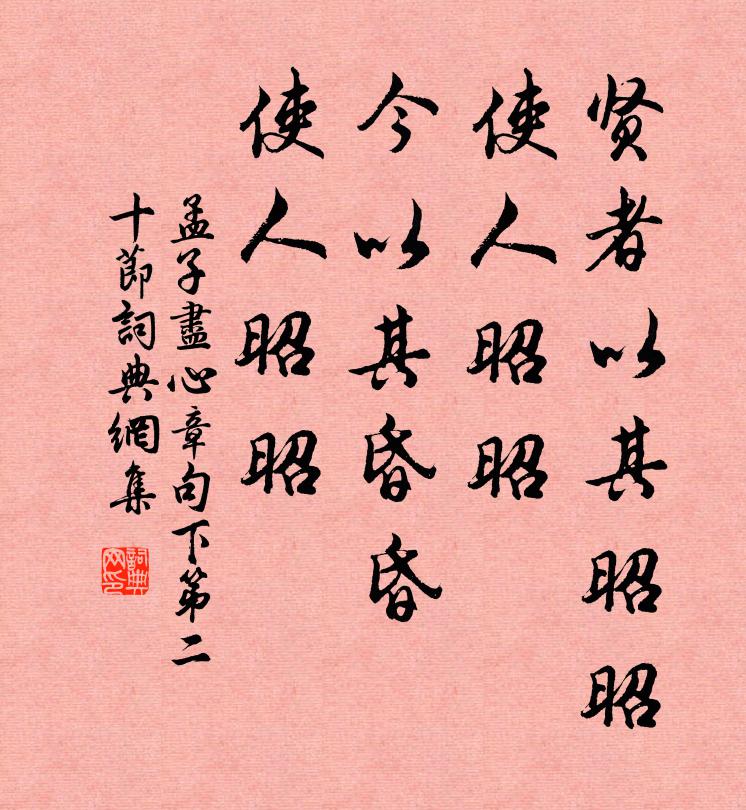 贤者以其昭昭
使人昭昭
今以其昏昏
使人昭昭
孟子盡心章句下第二
十節詞典網集
詞典
网印